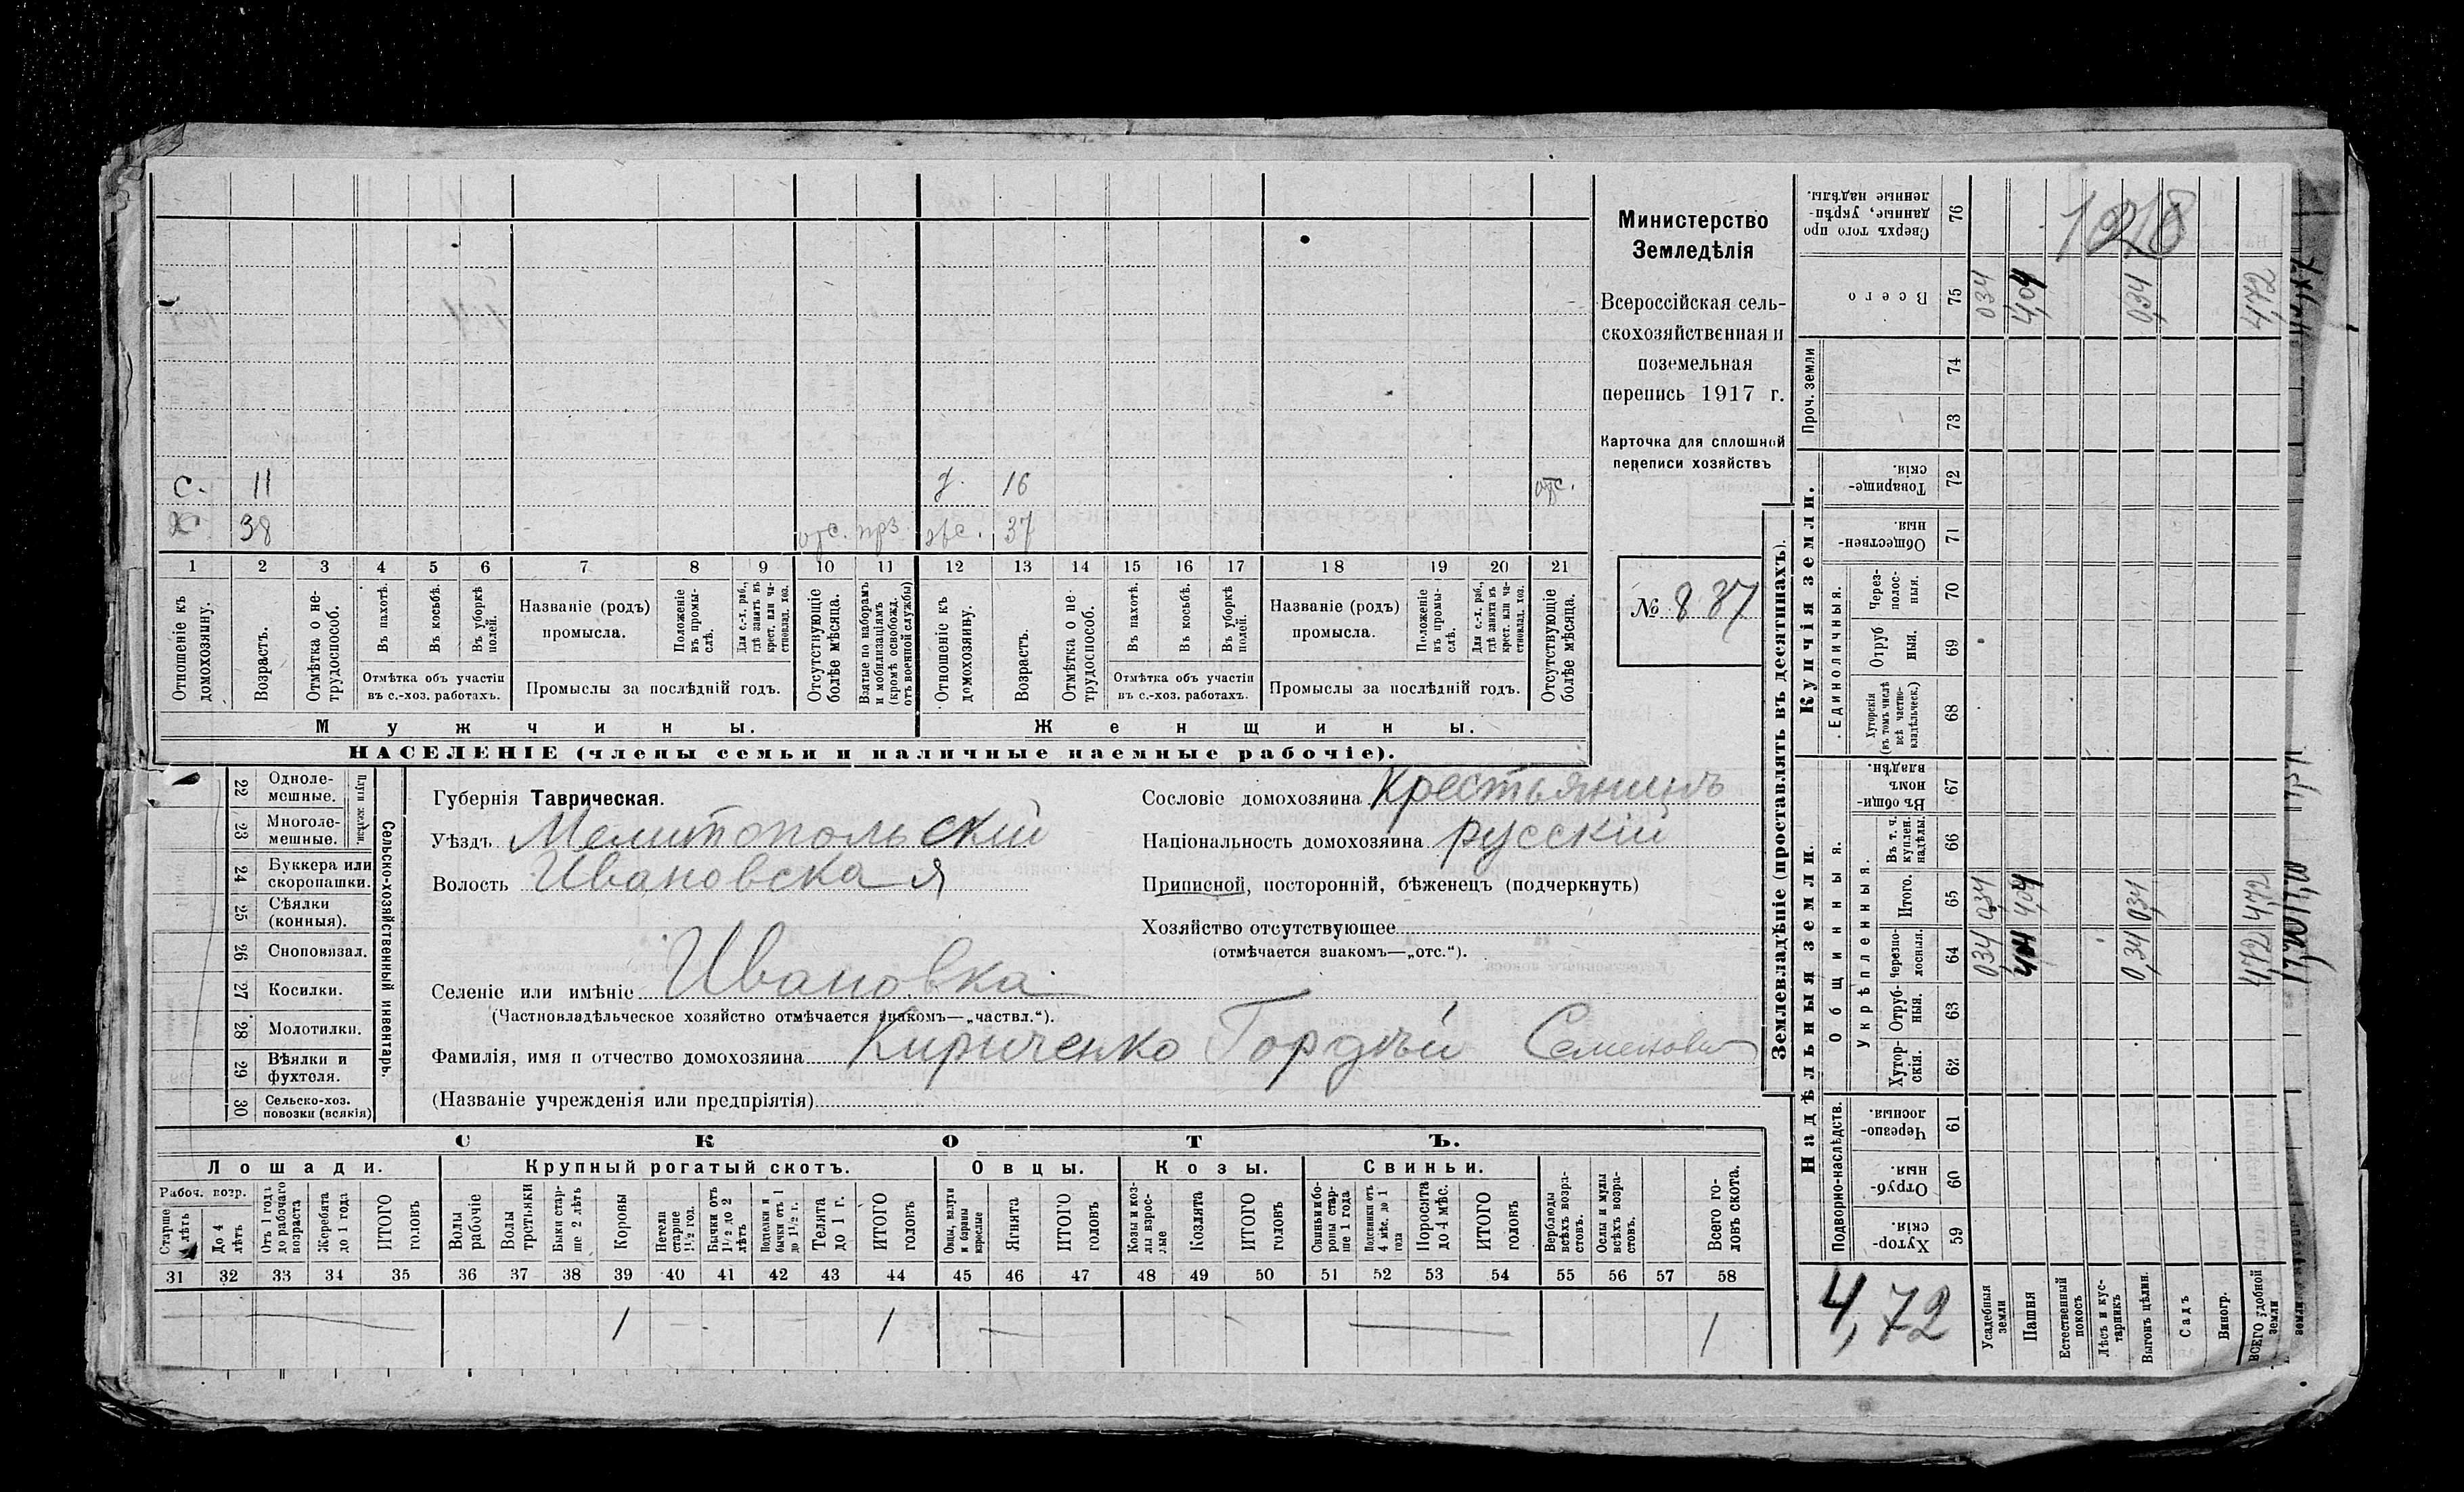 С. 11 д. 16 отс.
Х. 38 отс. прз. жс. 37
1 2 3 4 5 6 7 8 9 10 11 12 13 14 15 16 17 18 19 20 21
Отношеніе къ домохозяину.
Возрастъ.
Отмѣтка о не-трудоспособ.
Въ пахотѣ.
Въ косьбѣ.
Въ уборкѣ полей.
Отмѣтка объ участіи
въ с.-хоз. работахъ.
Названіе (родъ)
промысла.
Положеніе въ промы-слѣ.
Для с.-х. раб., гдѣ занятъ въ крест. или ча-стновлад. хоз.
Промыслы за послѣдній годъ.
Отсутствующіе болѣе мѣсяца.
Взятые по наборамъ и мобилизаціямъ (кромѣ освобожд. отъ военной службы)
Отношеніе къ домохозяину.
Возрастъ.
Отмѣтка о не-трудоспособ.
Въ пахотѣ.
Въ косьбѣ.
Въ уборкѣ полей.
Отмѣтка объ участіи
въ с.-хоз. работахъ.
Названіе (родъ)
промысла.
Положеніе въ промы-слѣ.
Для с.-х. раб., гдѣ занята въ крест. или ча-стновлад. хоз.
Промыслы за послѣдній годъ.
Отсутствующіе болѣе мѣсяца.
Мужчины. Женщины.
НАСЕЛЕНІЕ (члены семьи и наличные наемные рабочіе).
Министерство
Земледѣлія
Всероссійская сель-
скохозяйственная и
поземельная
перепись 1917 г.
Карточка для сплошной
переписи хозяйствъ
№ 837
Сельско-хозяйственный инвентарь.
22 Одноле-мешные.
23 Многоле-мешные.
24 Буккера или скоропашки.
25 Сѣялки (конныя).
26 Сноповязал.
27 Косилки.
28 Молотилки.
29 Вѣялки и фухтеля.
30 Сельско-хоз. повозки (всякія)
Губернія Таврическая.
Уѣздъ Мелитопольскій
Волость Ивановская
Селеніе или имѣніе Ивановка
(Частновладѣльческое хозяйство отмѣчается знакомъ—„частвл.“).
Фамилія, имя и отчество домохозяина Кириченко Гордѣй Семенович
(Названіе учрежденія или предпріятія)
Сословіе домохозяина Крестьянинъ
Національность домохозяина русскій
Приписной, посторонній, бѣженецъ (подчеркнуть)
Хозяйство отсутствующее
(отмѣчается знакомъ—„отс.“).
СКОТЪ.
Лошади. Крупный рогатый скотъ. Овцы. Козы. Свиньи.
Рабоч. возр.
Старше 4 лѣтъ
До 4 лѣтъ
Отъ 1 года до рабочаго возраста
Жеребята до 1 года
ИТОГО головъ
Волы рабочіе
Волы третьяки
Быки стар-ше 2 лѣтъ
Коровы
Нетели старше 1½ год.
Бычки отъ 1½ до 2 лѣтъ
Подтелки и бычки отъ 1 до 1½ г.
Телята до 1 г.
ИТОГО головъ
Овцы, валухи и бараны взрослые
Ягнята
ИТОГО головъ
Козы и коз-лы взрос-лые
Козлята
ИТОГО головъ
Свиньи и бо-ровы стар-ше 1 года
Подсвинки отъ 4 мѣс. до 1 года
Поросята до 4 мѣс.
ИТОГО головъ
Верблюды всѣхъ возра-стовъ.
Ослы и мулы всѣхъ возра-стовъ.
Всего го-ловъ скота.
31 32 33 34 35 36 37 38 39 40 41 42 43 44 45 46 47 48 49 50 51 52 53 54 55 56 57 58
1 1 1
Землевладѣніе (проставлять въ десятинахъ).
Надѣльныя земли.
Купчія земли.
Проч. земли
Подворно-наслѣдств.
Общинныя.
Укрѣпленныя.
Единоличныя.
Хутор-скія. 59
Отруб-ныя. 60
Черезпо-лосныя. 61
Хутор-скія. 62
Отруб-ныя. 63
Черезпо-лосныя. 64
Итого. 65
Въ т. ч. куплен. надѣлы. 66
Въ общи-номъ владѣн. 67
Хуторскія (въ томъ числѣ всѣ частно-владѣльческ.) 68
Отруб ныя. 69
Через-полос-ныя. 70
Обществен-ныя. 71
Товарище-скія. 72
73
74
Всего 75
Сверхъ того про данные, укрѣп-ленные надѣлы. 76
1218
4,72
Усадебныя земли 034 034 034
Пашня 4,04 4,04 4,04
Естественный покосъ
Лѣсъ и кус-тарникъ
Выгонъ цѣлин. 0,34 034 0,34
Садъ
Виногр.
ВСЕГО удобной земли 4,72 4,72 4,72